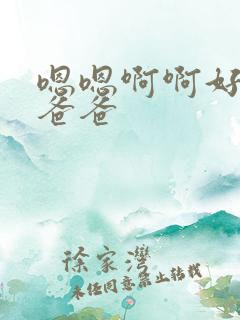 嗯嗯啊啊好
爸爸
徐家湾
未经同意禁止转载